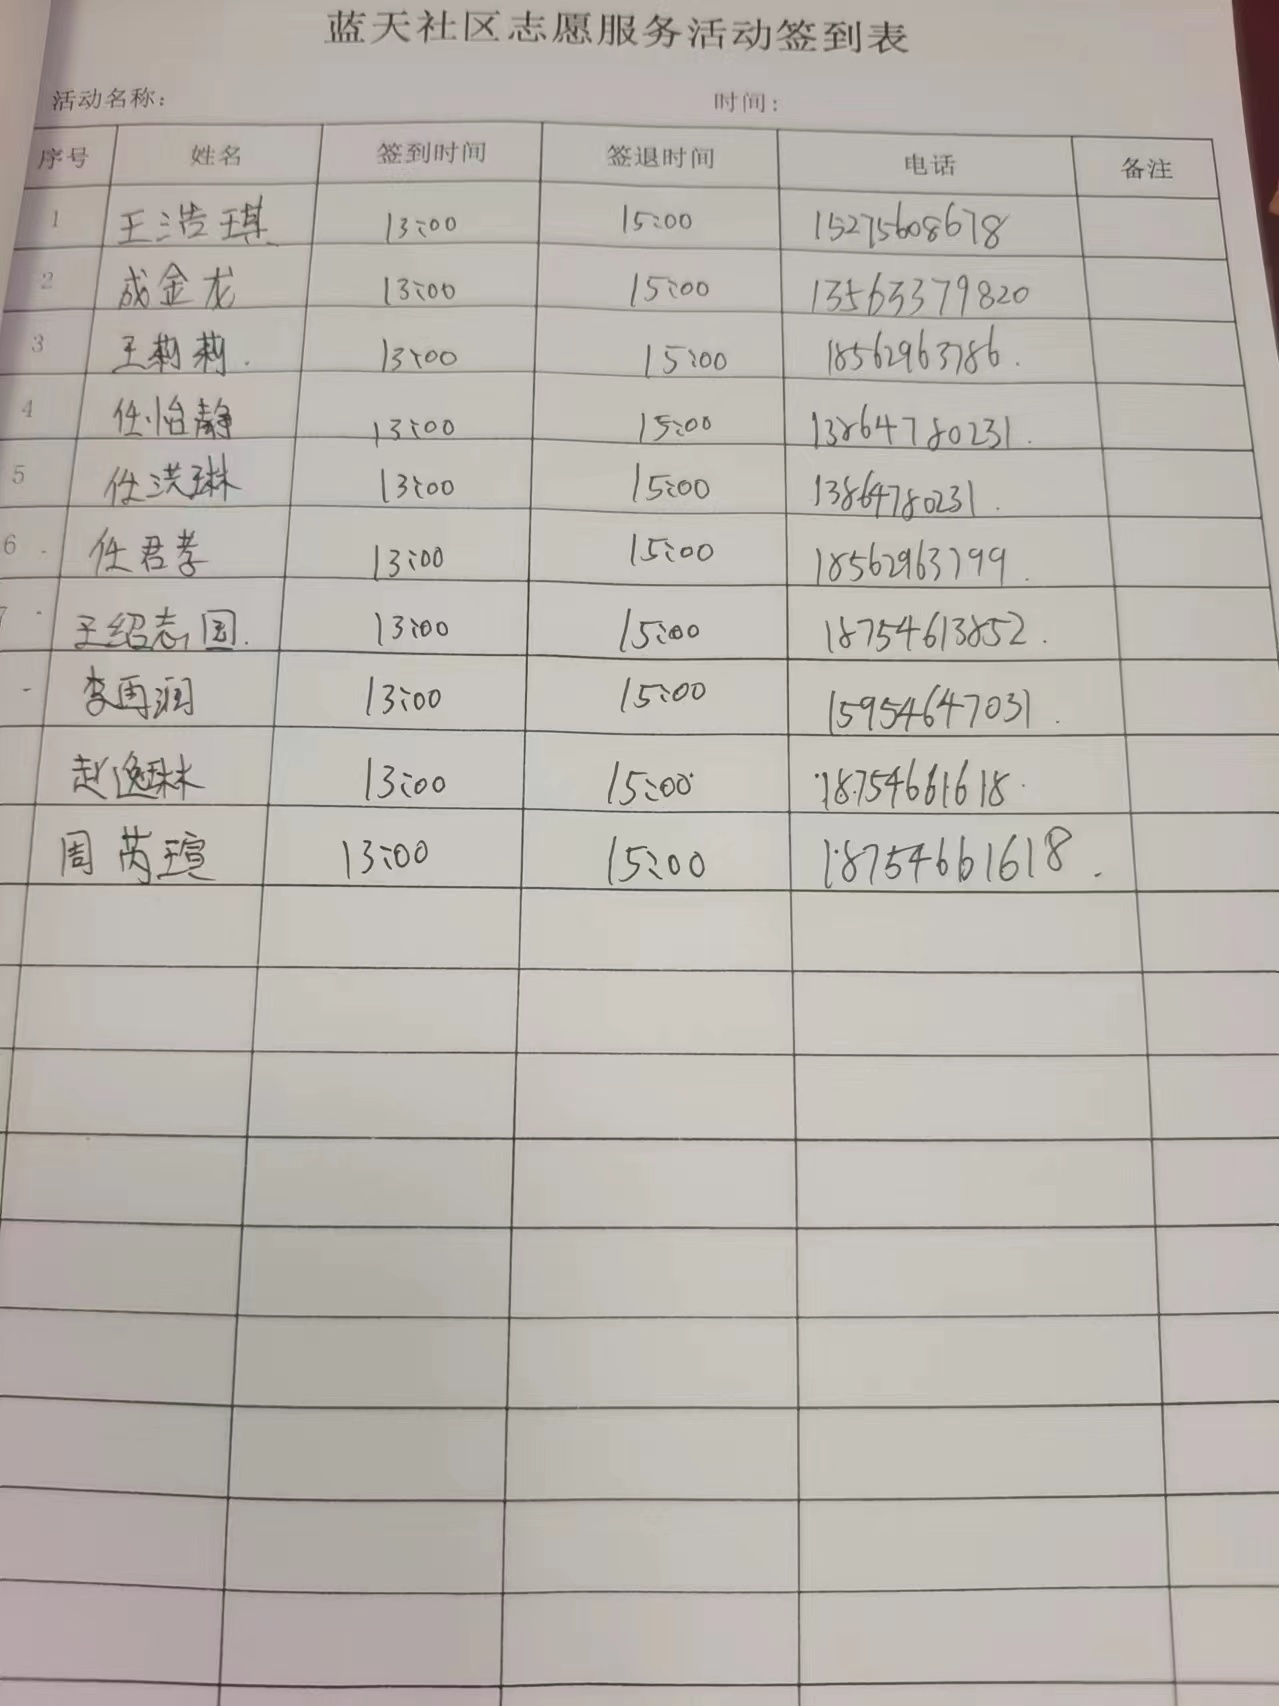 蓝天社区志愿服务活动签到表
活动名称： 时间：
序号 姓名 签到时间 签退时间 电话 备注
1 王浩琪 13:00 15:00 15275608678
2 成金龙 13:00 15:00 13563379820
3 王莉莉. 13:00 15:00 18562963786.
4 任怡静 13:00 15:00 13864780231.
5 任洪琳 13:00 15:00 13864780231.
6 任君孝 13:00 15:00 18562963799.
7 王绍志国. 13:00 15:00 18754613852.
李再润 13:00 15:00 15954647031.
赵逸琳 13:00 15:00 18754661618.
周芮瑄 13:00 15:00 18754661618.